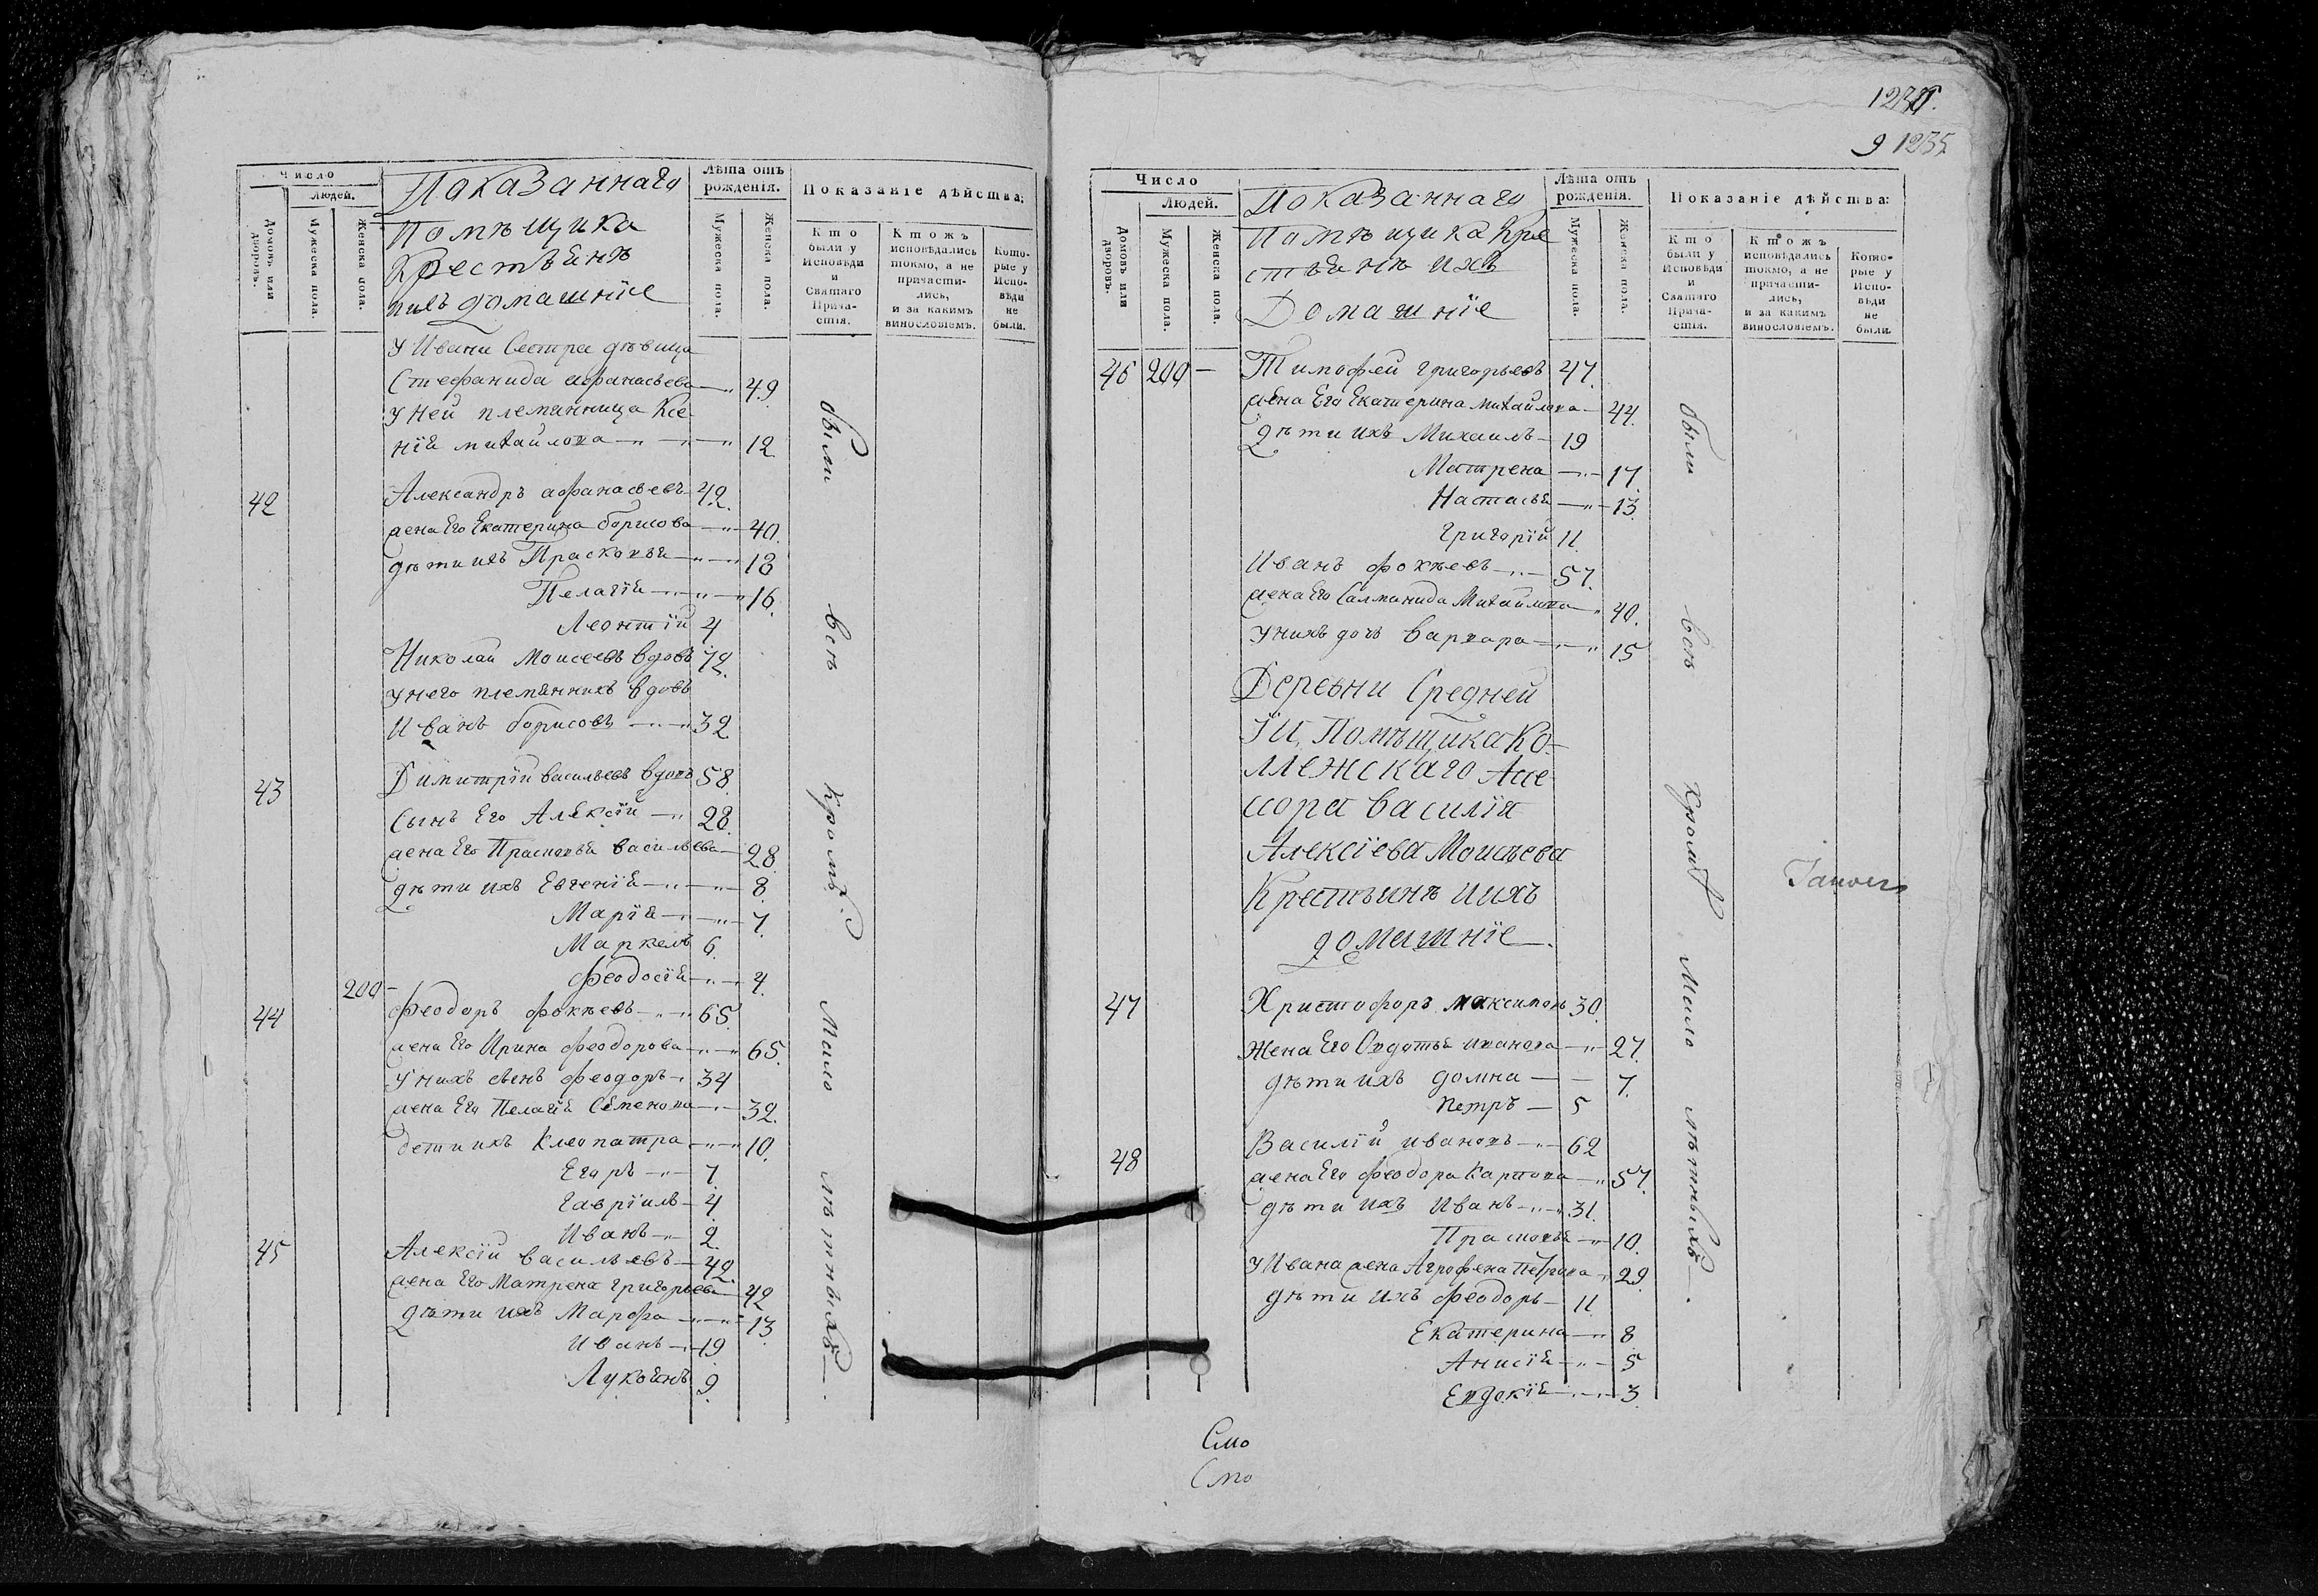 Число
Людей.
Домовъ или дворовъ.
Мужеска пола.
Женска пола.
Показаннаго
Помѣщика
Крестьянѣ
ихъ домашніе
Лѣта отъ рожденія.
Мужеска пола.
Женска пола.
Показаніе дѣйства:
Кто были у Исповѣди и Святаго Причастія.
Ктожъ исповѣдались токмо, а не причастились, и за какимъ винословіемъ.
Которые у Исповѣди не были.
У Ивана Сестра дѣвица
Стефанида Афанасьева 49
У ней племянница Ксе-
нія михайлова 12
42 Александръ афанасьевъ 42
жена Его Екатерина борисова 40
дѣти ихъ Прасковья 18
Пелагія 16
Леонтій 4
Николай моисеевъ вдовъ 72
У него племянникъ вдовъ
Иванъ борисовъ 32
43 Димитрій васильевъ вдовъ 58
Сынъ Его Алексій 28
жена Его Прасковья васильева 28
дѣти ихъ Евгенія 8
Марія 7
Маркелъ 6
200 Феодосія 4
44 Феодоръ фокѣевъ 65
жена Его Ирина феодорова 65
У нихъ сынъ феодоръ 34
жена Его Пелагія Семенова 32
дети ихъ Клеопатра 10
Егоръ 7
Гавріилъ 4
Иванъ 2
45 Алексій васильевъ 42
жена Его Матрена григорьева 42
дѣти ихъ Марфа 13
Иванъ 19
Лукоянъ 9
были всѣ кромѣ мало лѣтныхъ
1235
Число
Людей.
Домовъ или дворовъ.
Мужеска пола.
Женска пола.
Показаннаго
Помѣщика Кре
стьянѣ ихъ
Домашніе
Лѣта отъ рожденія.
Мужеска пола.
Женска пола.
Показаніе дѣйства:
Кто были у Исповѣди и Святаго Причастія.
Ктожъ исповѣдались токмо, а не причастились, и за какимъ винословіемъ.
Которые у Исповѣди не были.
46 200 Тимофей григорьевъ 47
жена Его Екатерина михайлова 44
дѣти ихъ Михаилъ 19
Матрена 17
Настасья 13
Григорій 11
Иванъ фокѣевъ 57
жена Его Михайлова 40
У нихъ дочь варвара 15
Деревни Средней
Помѣщика Ко-
ллежскаго Ассе
ссора василія
Алексіева Моисѣева
Крестьянѣ ихъ
домашніе
47 Христофоръ максимовъ 30
Жена Его Овдотья иванова 27
дѣти ихъ домна 7
Петръ 5
48 Василій ивановъ 62
жена Его феодора Карпова 57
дѣти ихъ Иванъ 31
Прасковья 10
У Ивана жена Агрофена Петрова 29
дѣти ихъ феодоръ 11
Екатерина 8
Анисія 5
Евдокія 3
были всѣ Кромѣ Мало лѣтныхъ